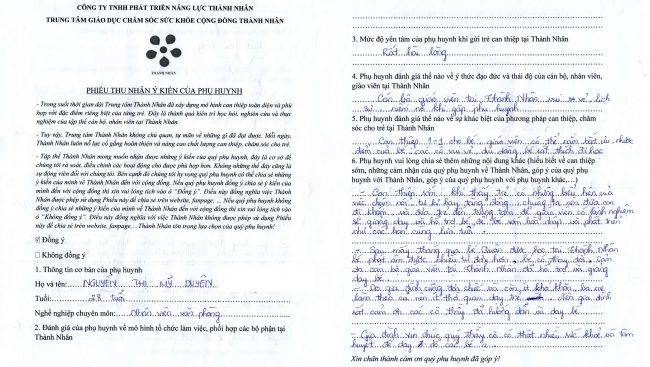 CÔNG TY TNHH PHÁT TRIỂN NĂNG LỰC THÀNH NHÂN
TRUNG TÂM GIÁO DỤC CHĂM SÓC SỨC KHỎE CỘNG ĐỒNG THÀNH NHÂN
THÀNH NHÂN
PHIẾU THU NHẬN Ý KIẾN CỦA PHỤ HUYNH
- Trong suốt thời gian dài Trung tâm Thành Nhân đã xây dựng mô hình can thiệp toàn diện và phù
hợp với đặc điểm riêng biệt của từng trẻ. Đây là thành quả kiên trì học hỏi, nghiên cứu và thực
nghiệm của tập thể cán bộ, nhân viên tại Thành Nhân.
- Tuy vậy, Trung tâm Thành Nhân không chủ quan, tự mãn về những gì đã đạt được. Mỗi ngày,
Thành Nhân luôn nỗ lực cố gắng hoàn thiện và nâng cao chất lượng can thiệp, chăm sóc cho trẻ.
- Tập thể Thành Nhân mong muốn nhận được những ý kiến của quý phụ huynh, đây là cơ sở để
chúng tôi rà soát, điều chỉnh các hoạt động cho được phù hợp hơn. Không những thế đây cũng là
sự động viên đối với chúng tôi. Bên cạnh đó chúng tôi hy vọng quý phụ huynh có thể chia sẻ những
ý kiến của mình về Thành Nhân đến với cộng đồng. Nếu quý phụ huynh đồng ý chia sẻ ý kiến của
mình đến với cộng đồng thì xin vui lòng tích vào ô "Đồng ý". Điều này đồng nghĩa việc Thành
Nhân được phép sử dụng Phiếu này để chia sẻ trên website, fanpage. ... Nếu quý phụ huynh không
đồng ý chia sẻ những ý kiến của mình về Thành Nhân đến với cộng đồng thì xin vui lòng tích vào
ô "Không đồng ý". Điều này đồng nghĩa với việc Thành Nhân không được phép sử dụng Phiếu
này để chia sẻ trên website, fanpage... Thành Nhân tôn trọng lựa chọn của quý phụ huynh!
☑ Đồng ý
☐ Không đồng ý
1. Thông tin cơ bản của phụ huynh
Họ và tên: NGUYỄN THỊ MỸ DUYÊN
Tuổi: 28 tuổi
Nghề nghiệp chuyên môn: Nhân viên văn phòng
2. Đánh giá của phụ huynh về mô hình tổ chức làm việc, phối hợp các bộ phận tại
Thành Nhân
3. Mức độ yên tâm của phụ huynh khi gửi trẻ can thiệp tại Thành Nhân
Rất hài lòng
4. Phụ huynh đánh giá thế nào về ý thức đạo đức và thái độ của cán bộ, nhân viên,
giáo viên tại Thành Nhân
Cán bộ giáo viên tại Thành Nhân vui vẻ, lịch
sự khi gặp phụ huynh
5. Phụ huynh đánh giá thế nào về sự khác biệt của phương pháp can thiệp, chăm
sóc cho trẻ tại Thành Nhân
Can thiệp 1-1 cho bé, giáo viên có thể nắm bắt ưu, nhược
điểm của bé, bé thích đi học
6. Phụ huynh vui lòng chia sẻ thêm những nội dung khác (hiểu biết về can thiệp
sớm, những cảm nhận của quý phụ huynh về Thành Nhân, góp ý của quý phụ
huynh với Thành Nhân, góp ý của quý phụ huynh với phụ huynh khác…)
- Can thiệp sớm khi thấy trẻ có những biểu hiện của
việc chậm nói, tự kỉ hay tăng động, chúng ta nên đưa con
đi khám và đưa trẻ đến trung tâm để giáo viên có kinh nghiệm
sẽ giảng dạy và hỗ trợ bé, để bé hòa nhập và phát triển
như các bạn cùng lứa tuổi.
- Sau mấy tháng qua bé Quân được học tại Thành Nhân
bé phát âm được nhiều từ đầy hơn, bé có thay đổi. Cảm
ơn cán bộ giáo viên tại Thành Nhân đã hỗ trợ và giảng
dạy bé.
- Do gia đình cũng đa số và con ít khó khăn, ba mẹ
làm theo ca nên ít thời gian dạy trẻ. Nên gia đình
rất cảm ơn các cô thầy đã hướng dẫn và dạy bé.
- Gia đình xin chúc quý thầy cô có thật nhiều sức khoẻ và tâm
huyết để dạy dỗ các bé ạ.
Xin chân thành cảm ơn quý phụ huynh đã góp ý!